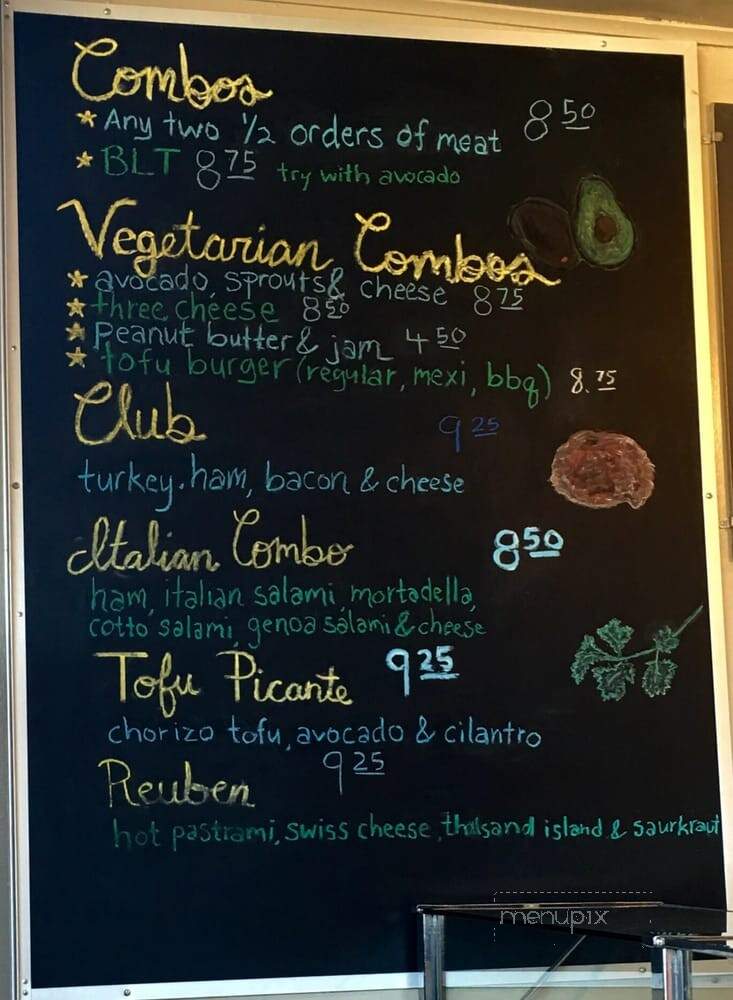 Combos
* Any two ½ orders of meat 8 50
* BLT 8 75 try with avocado
Vegetarian Combos
* avocado, sprouts & cheese 8 75
* three cheese 8 50
* Peanut butter & jam 4 50
* tofu burger (regular, mexi, bbq) 8.75
Club 9 25
turkey. ham, bacon & cheese
Italian Combo 8 50
ham, italian salami, mortadella,
cotto salami, genoa salami & cheese
Tofu Picante 9 25
chorizo tofu, avocado & cilantro
Reuben 9 25
hot pastrami, swiss cheese, thousand island & saurkraut
menupix